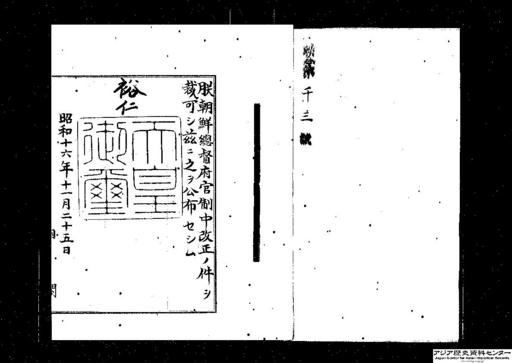 勅令第千三號
朕朝鮮總督府官制中改正ノ件ヲ
裁可シ茲ニ之ヲ公布セシム
裕仁
天皇
御璽
昭和十六年十一月二十五日
内閣
アジア歴史資料センター
Japan Center for Asian Historical Records